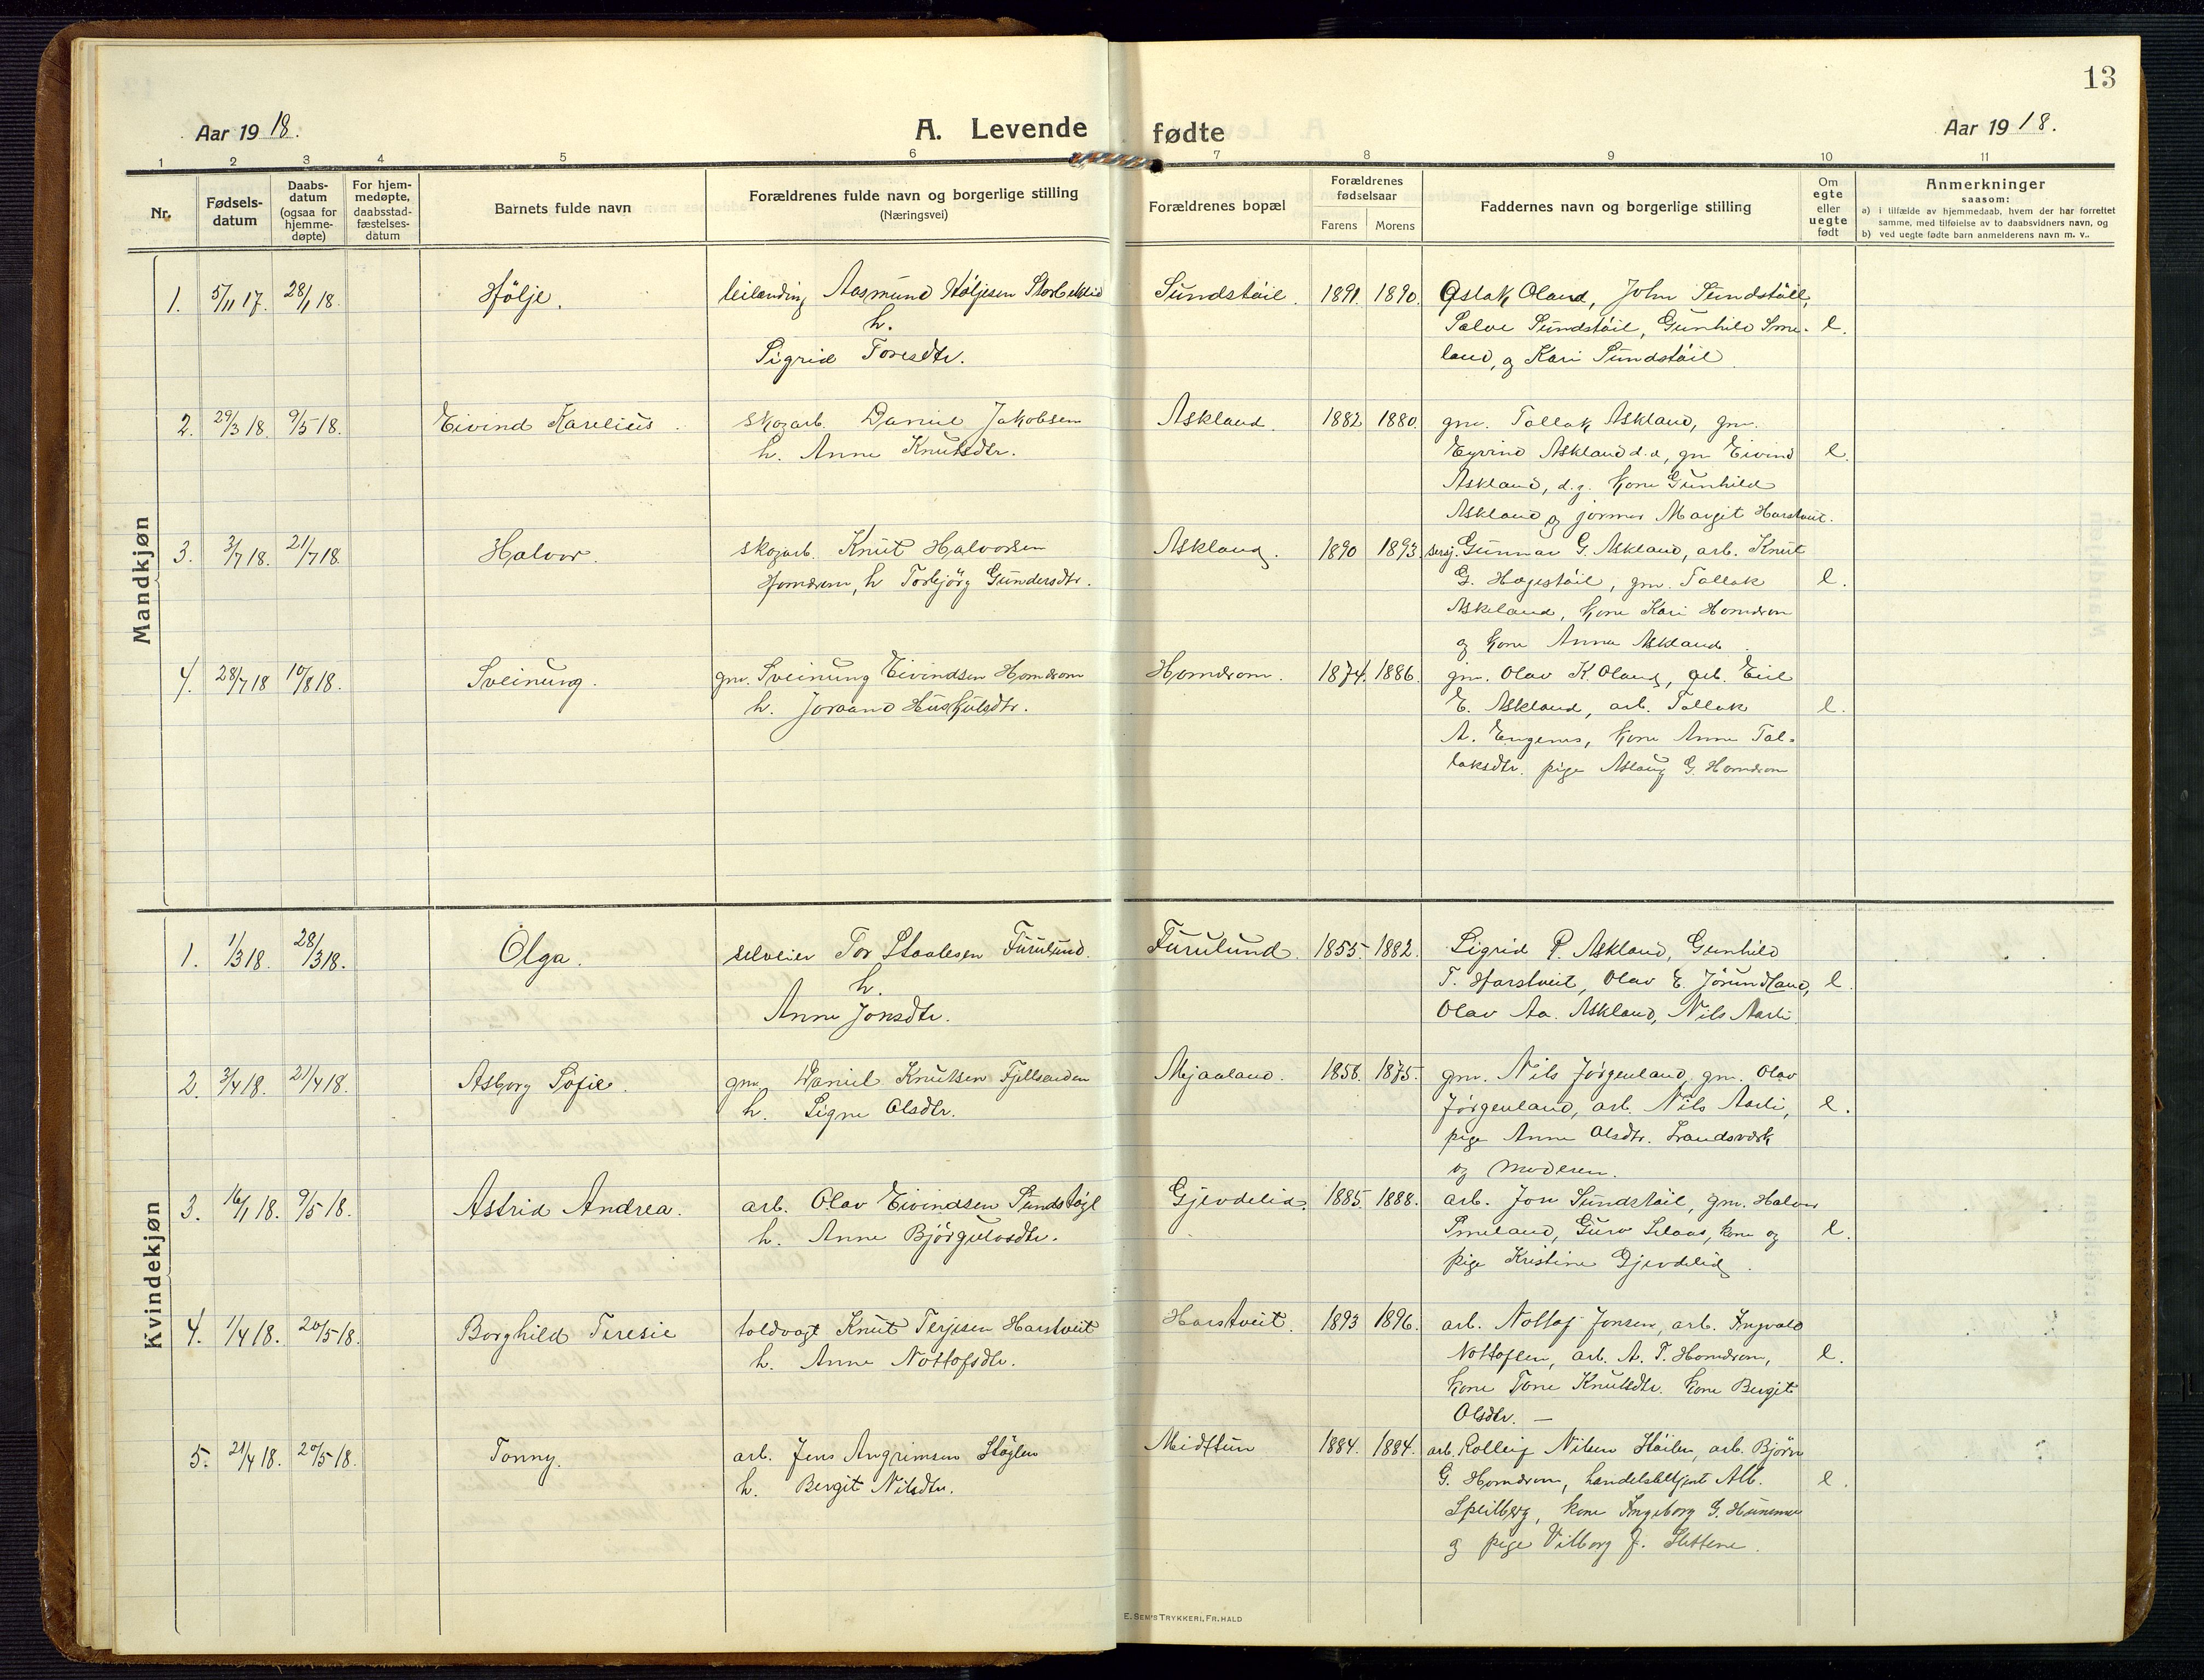 13
Aar 1918.
A. Levende fødte
Aar 1918.
1 2 3 4 5 6 7 8 9 10 11
Nr.
Fødsels-
datum
Daabs-
datum
(ogsaa for
hjemme-
døpte)
For hjem-
medøpte,
daabsstad-
fæstelses-
datum
Barnets fulde navn
Forældrenes fulde navn og borgerlige stilling
(Næringsvei)
Forældrenes bopæl
Forældrenes
fødselsaar
Farens Morens
Faddernes navn og borgerlige stilling
Om
egte
eller
uegte
født
Anmerkninger
saasom:
a) i tilfælde av hjemmedaab, hvem der har forrettet
samme, med tilføielse av to daabsvidners navn, og
b) ved uegte fødte barn anmelderens navn m. v..
Mandkjøn
1. 5/11 17. 28/1 18. Hölje. leilending Aasmund Höljesen 
h.
Sigrid Toresdtr.
Sundstöil. 1891. 1890. Aslak Oland, John Sundstöil,
Salve Sundstöil, Gunhild Sme- e.
land, og Kari Sundstöil
2. 29/3 18. 9/5 18. Eivind Karelius. skogarb. Daniel Jakobsen
h. Anne Knutsdtr.
Askland. 1882 1880. gm. Tallak Askland, gm.
Eyvind Askland d.æ, gm Eivind e.
Askland, d.y. kone Gunhild
Askland og jormor Margit Harstveit.
3. 3/7 18. 21/7 18. Halvor. skogarb. Knut Halvorsen
Homdrom, h Torbjörg Gundersdtr.
Askland. 1890 1893 sersj. Gunnar G. Askland, arb. Knut
G. Hagestöil, gm. Tallak e.
Askland, kone Kari Homdrom
og kone Anna Askland
4. 28/7 18 10/8 18. Sveinung. gm. Sveinung Eivindsen Homdrom
h. Joraand Huskulsdtr.
Homdrom. 1874. 1886. gm. Olav K. Oland, arb. Eil
E. Askland, arb. Tallak e.
A. Engenes, kone Anne Tal-
laksdtr. pige Aslaug G. Homdrom
Kvindekjøn
1. 1/3 18. 28/3 18. Olga. selveier Tor Staalesen Furulund.
h.
Anne Jonsdtr.
Furulund. 1855. 1882. Sigrid P. Askland, Gunhild
T. Harstveit, Olav E. Jörundland, e.
Olav Aa. Askland, Nils Aasli.
2. 3/4 18. 21/4 18. Asborg Sofie. gm. Daniel Knutsen Fjellsenden
h. Signe Olsdtr.
Mjaaland. 1858. 1875. gm. Nils Jörgenland, gm. Olav
Jörgenland, arb. Nils Aasli, e.
pige Anne Olsdtr. Landsverk
og moderen.
3. 16/1 18. 9/5 18. Astrid Andrea. arb. Olav Eivindsen Sundstöyl
h. Anne Björgulvsdtr.
Gjevdelid. 1885. 1888. arb. Jon Sundstöil, gm. Halvor
Smeland, Guro Selaas, kone og e.
pige Kristine Gjevdelid.
4. 1/4 18. 20/5 18. Borghild Teresie toldvagt Knut Terjesen Harstveit
h. Anne Nottofsdtr.
Harstveit. 1893 1896. arb. Nottof Jonsen, arb. Ingvald
Nottofsen, arb. A. T. Homdrom, e.
kone Tone Knutsdtr. kone Bergit
Olsdtr. —
5. 21/4 18. 20/5 18. Tonny. arb. Jens Angrimsen Stöylen
h. Bergit Nilsdtr.
Midttun 1884. 1884. arb. Rolleif Nilsen Stöilen, arb. Björn
G. Homdrom, handelsbetjent Alb. e.
Spilberg, kone Ingeborg G.
og pige Vilborg J. Slettene.
E. SEM'S TRYKKERI, FR.HALD